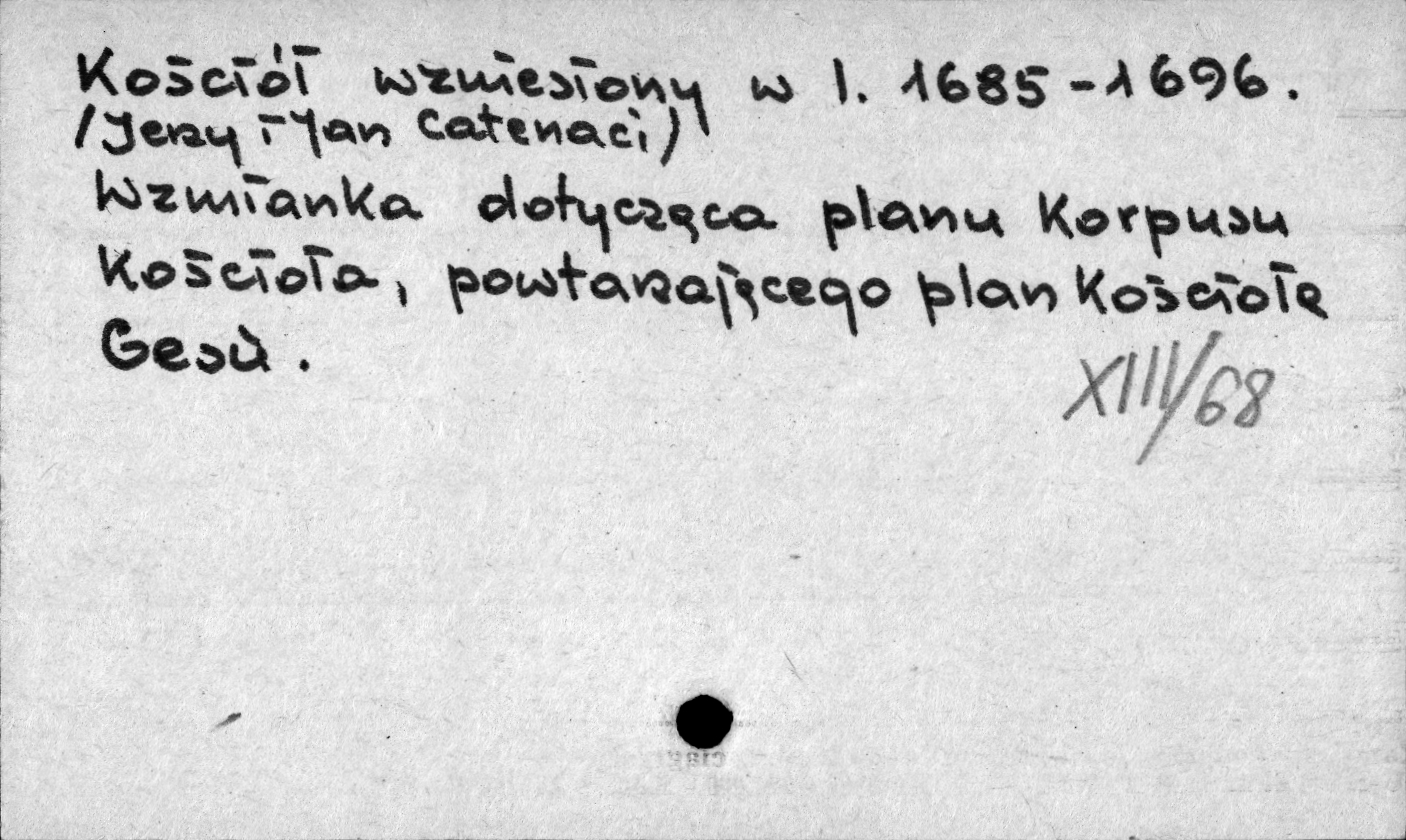 Kościół wzniesiony w l. 1685-1696.
/Jerzy i Jan Catenaci/
Wzmianka dotycząca planu korpusu
Kościoła, powtarzającego plan Kościoła
Gesù.
XIII/68